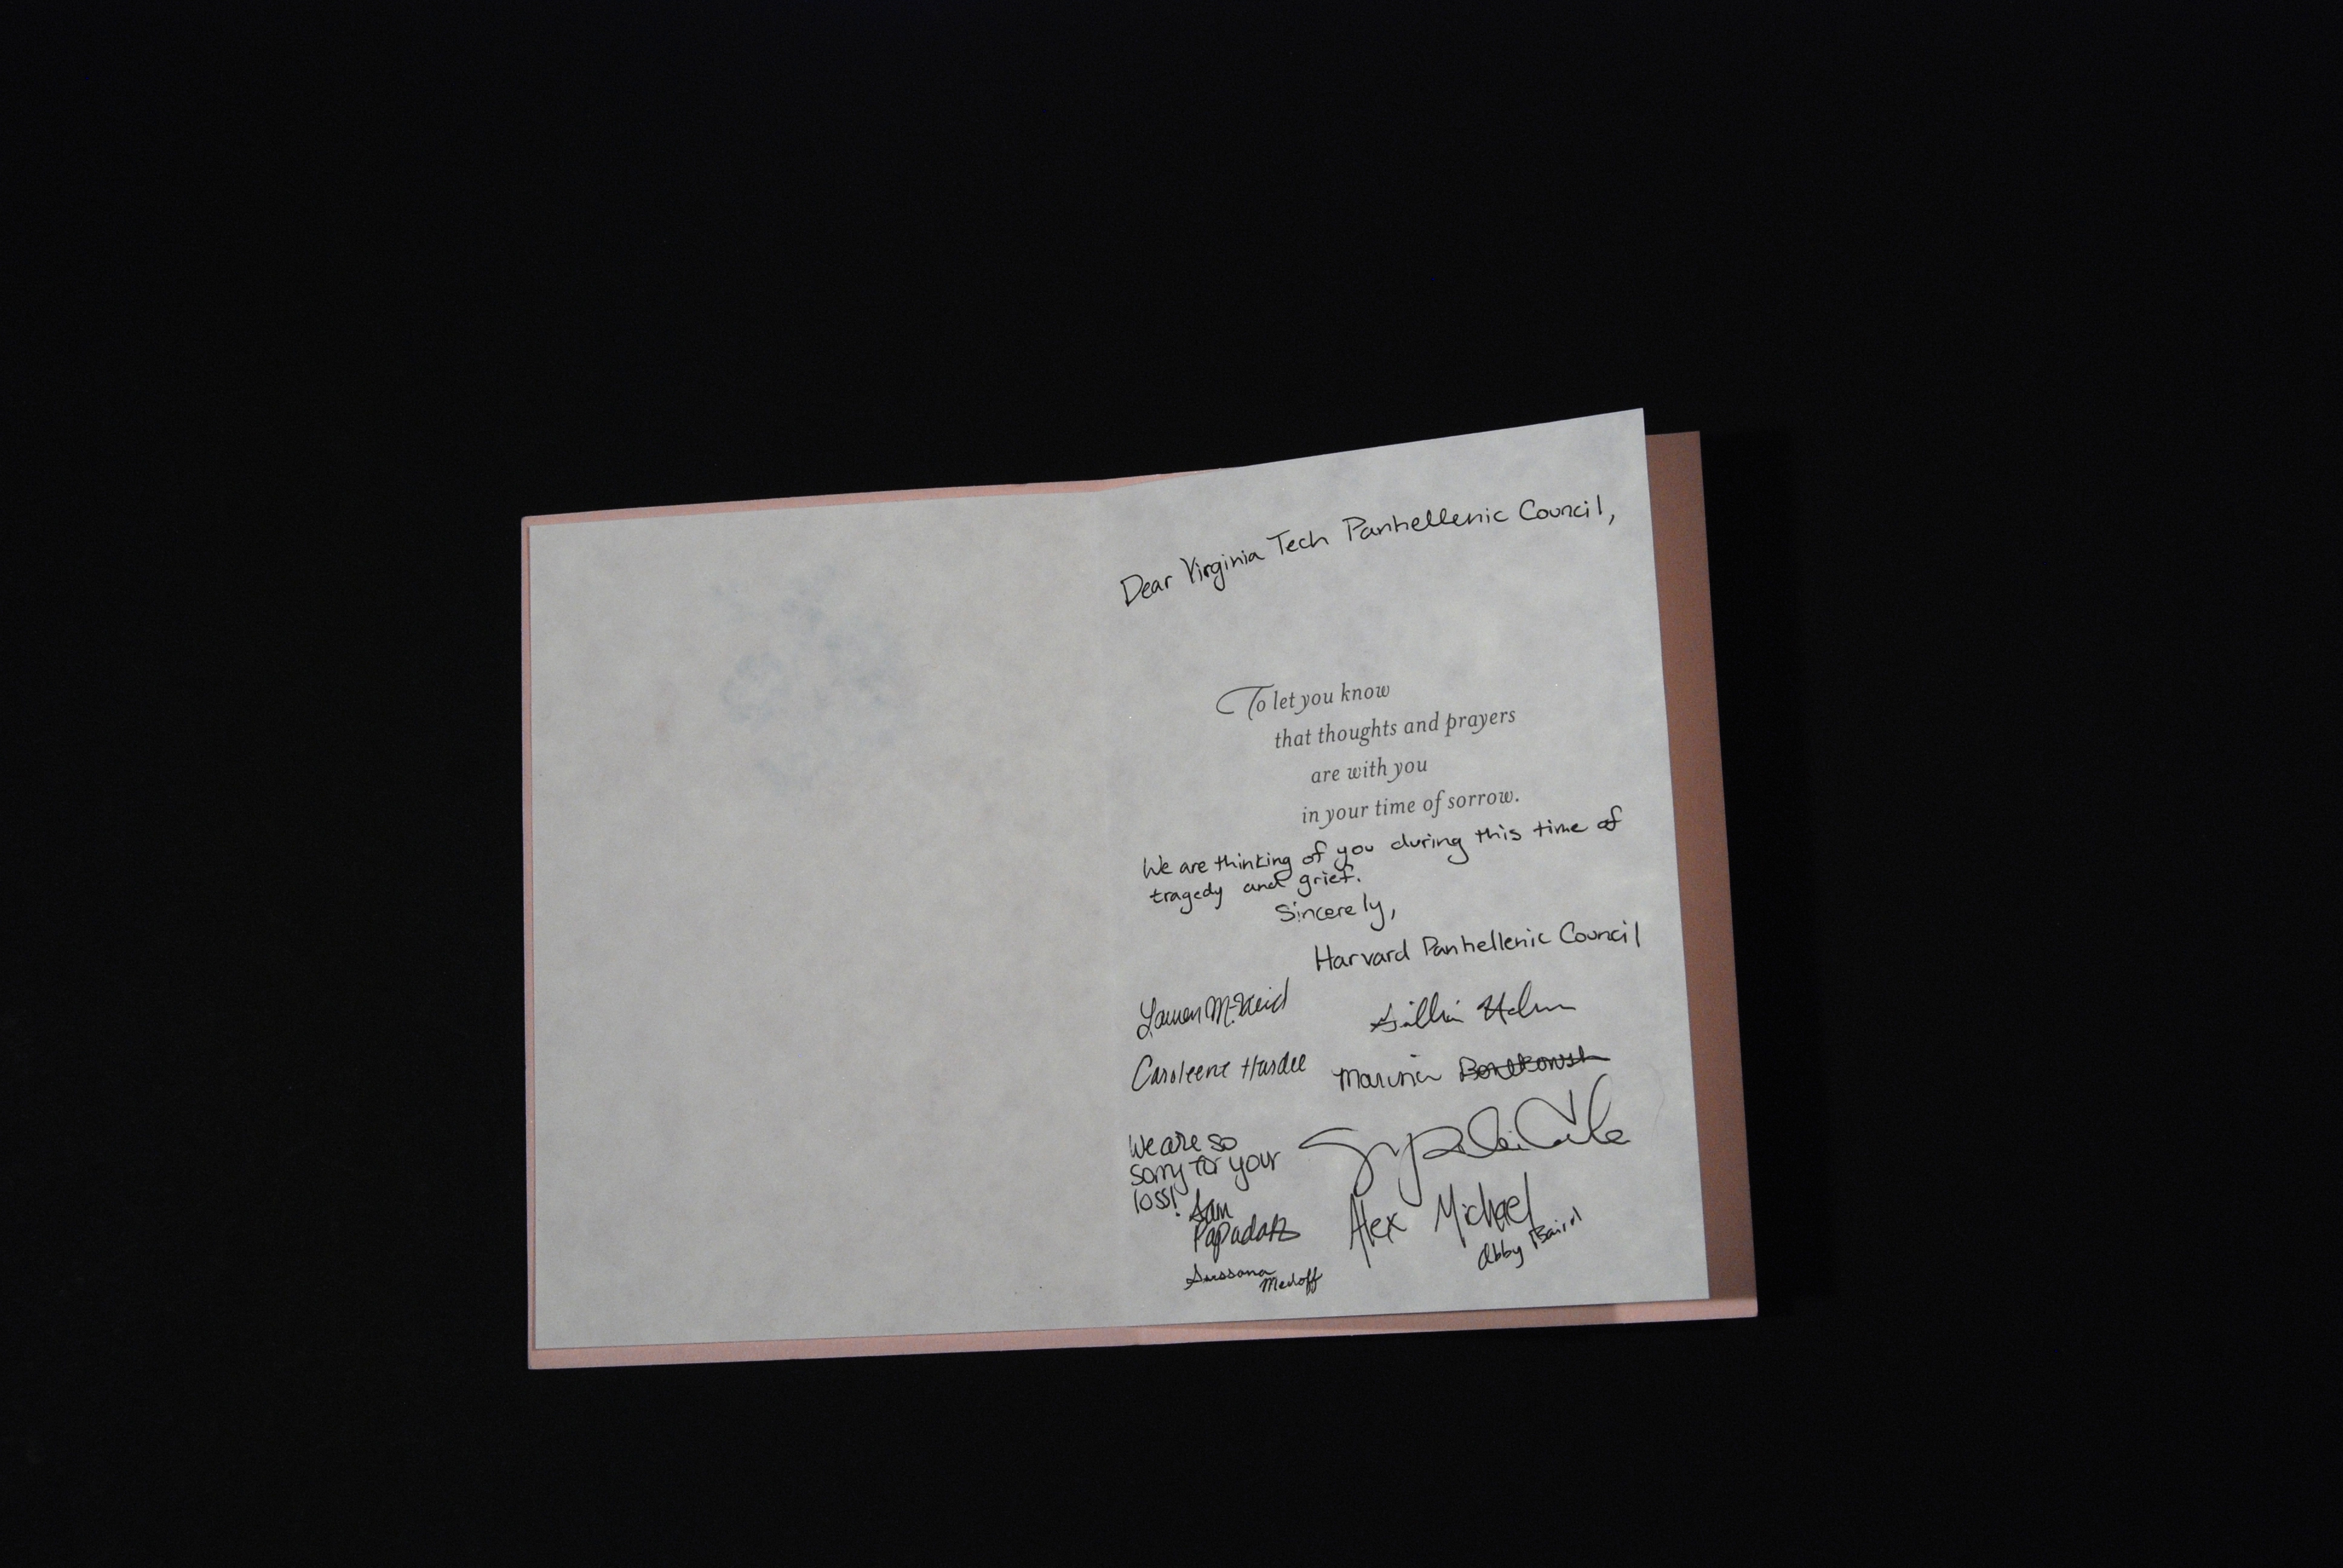 Dear Virginia Tech Panhellenic Council,
To let you know
that thoughts and prayers
are with you
in your time of sorrow.
We are thinking of you during this time of
tragedy and grief.
Sincerely,
Harvard Panhellenic Council
Lauren
Caroleene Hardee
We are so
sorry for your
loss!
Sam
Alex Michael
Abby Baird
Sussana
Medoff